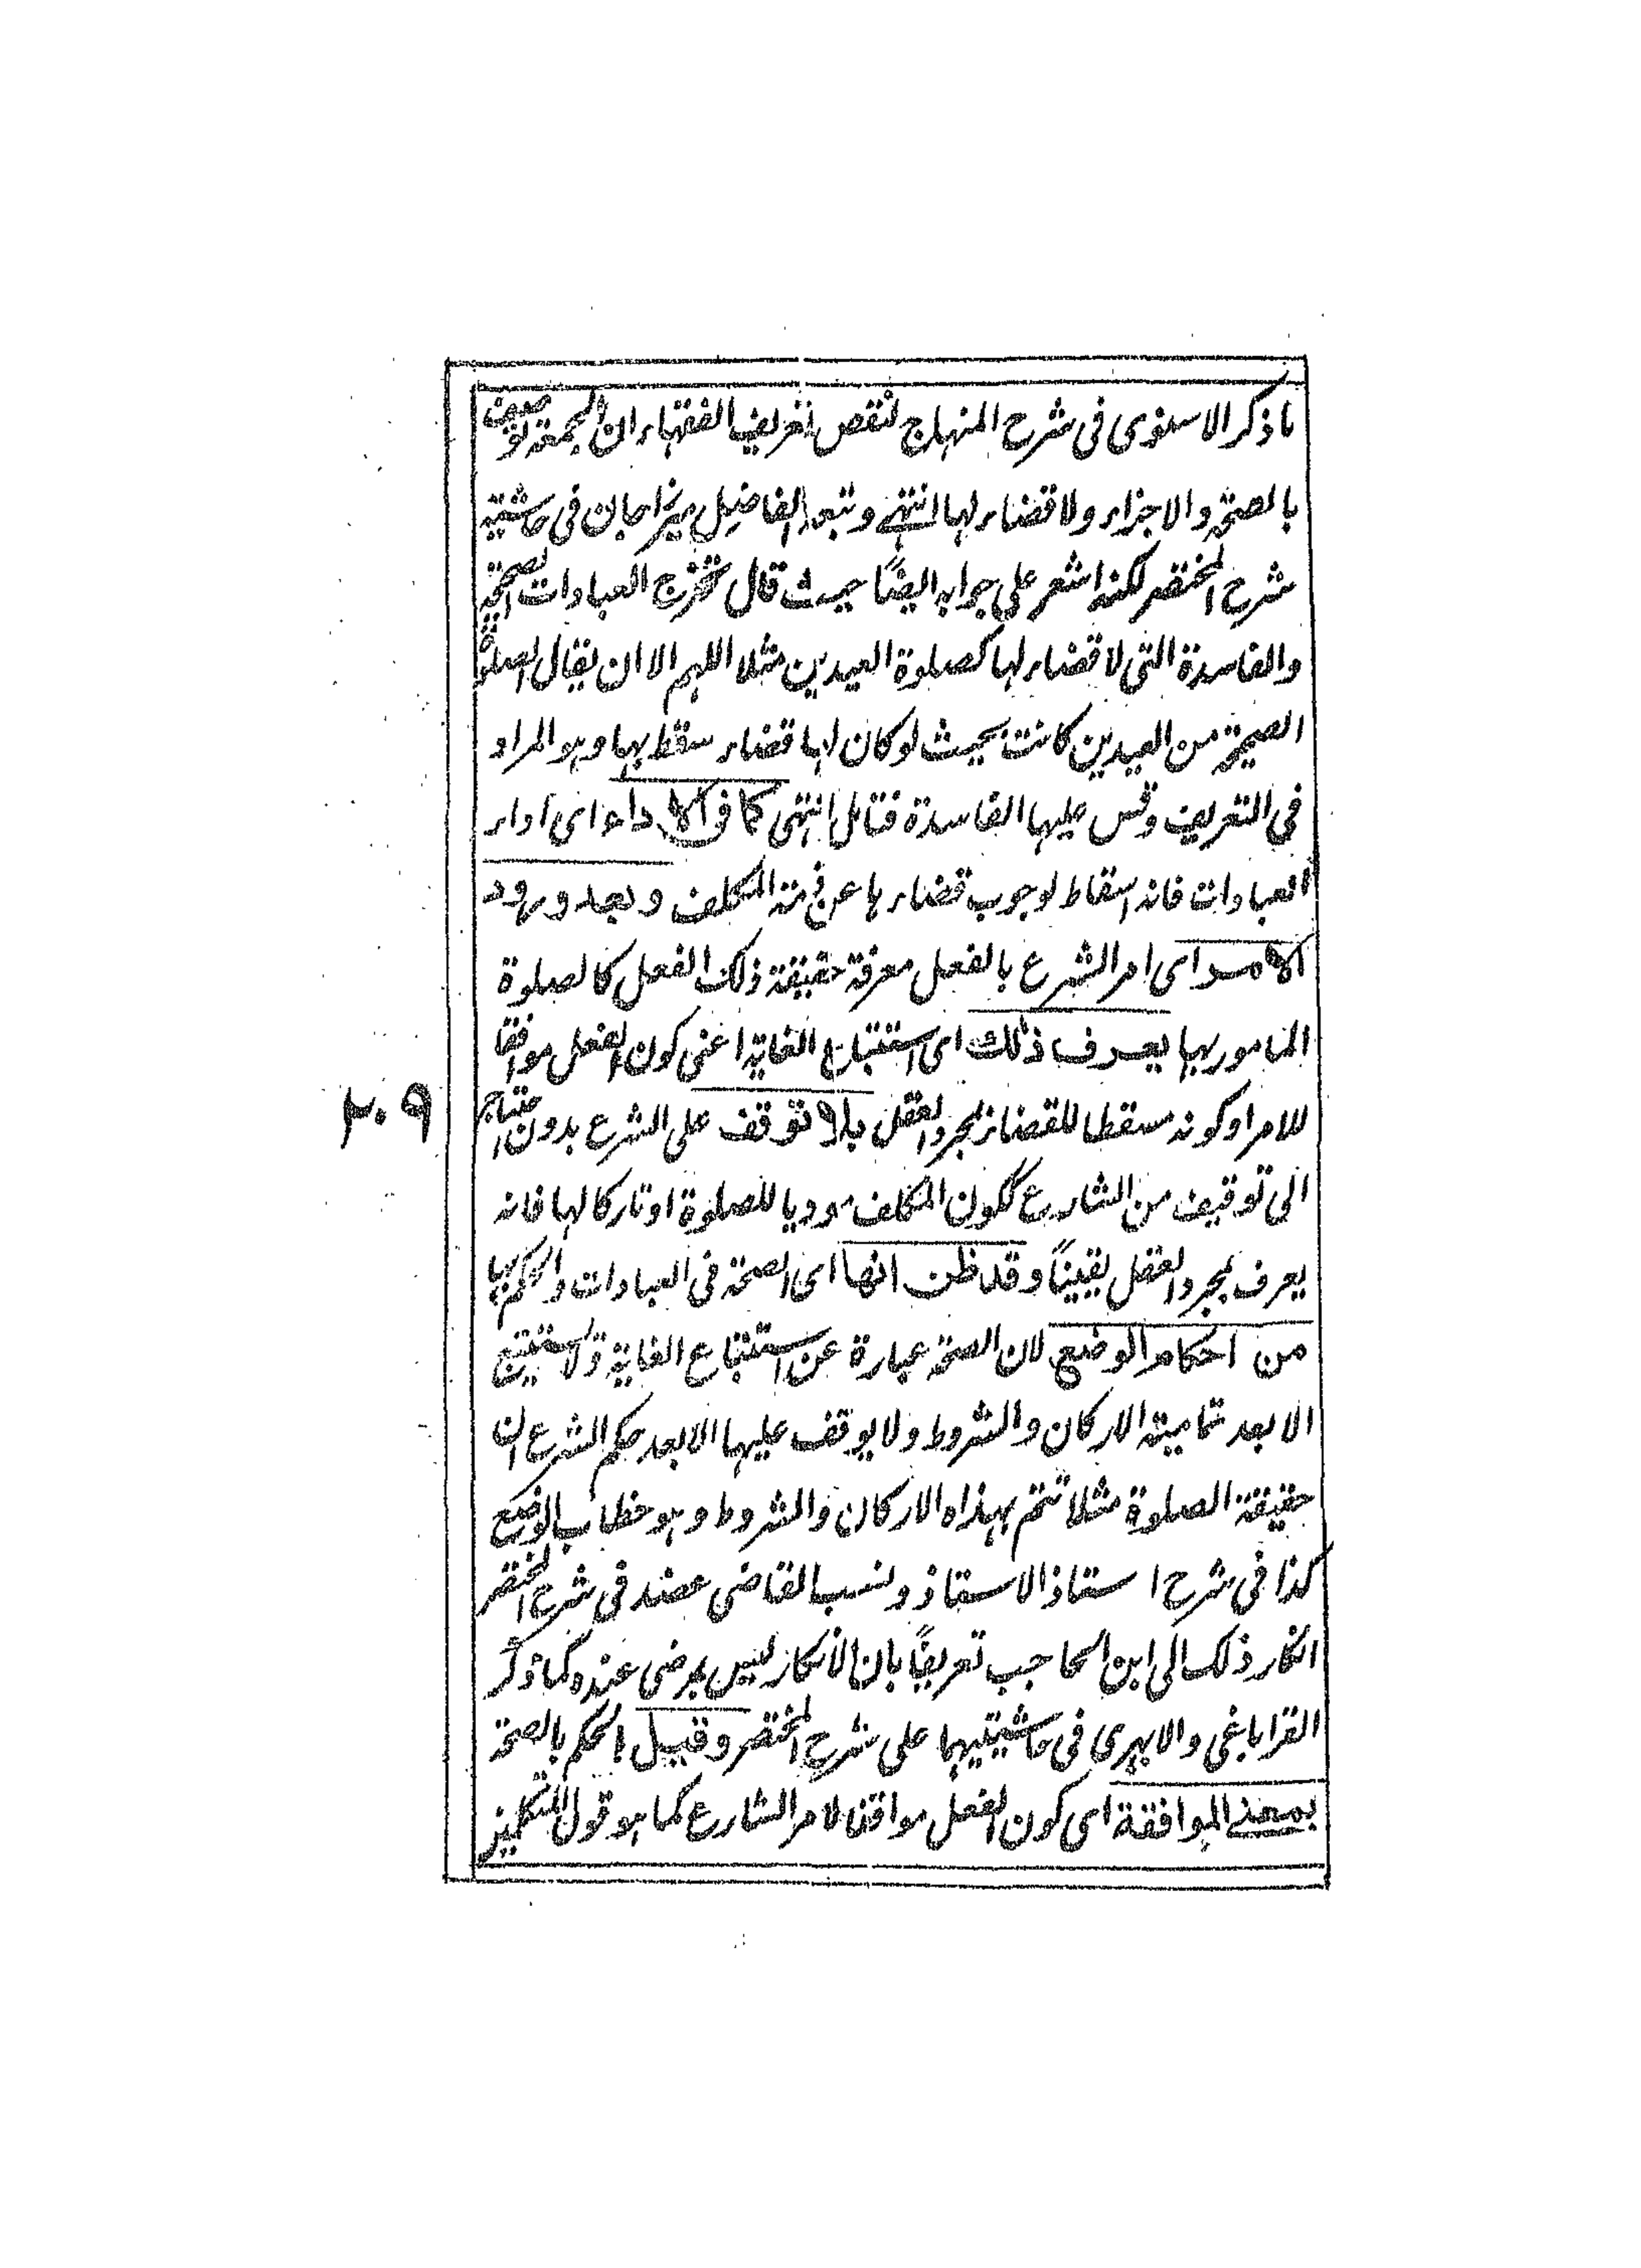 ما ذكر الاسنوى فى شرح المنهاج لنقص تعريف الفقهاء ان الجمعة توصف
بالصحة والاجزاء ولا قضاء لها انتهى وتبعه الفاضل ميرزا جان فى حاشية
شرح المختصر لكنه اشعر على جوابه ايضًا حيث قال تخرج العبادات الصحيحة
والفاسدة التى لا قضاء لها كصلوة العيدين مثلا اللهم الا ان يقال الصلوة
الصحيحة من العيدين كانت بحيث لو كان لها قضاء سقط بها وهو المراد
فى التعريف وقس عليها الفاسدة فتامل انتهى كما فى الاداء اى اداء
العبادات فانه اسقاط لوجوب قضاءها عن ذمة المكلف وبعد ورود
الامر اى امر الشرع بالفعل معرفة حقيقة ذلك الفعل كالصلوة
المامور بها يعرف ذلك اى استتباع الغاية اعنى كون الفعل موافقا
للامر او كونه مسقطا للقضاء بمجرد العقل بلا توقف على الشرع بدون احتياج
الى توقيف من الشارع ككون المكلف موديا للصلوة او تاركا لها فانه
يعرف بمجرد العقل يقينًا وقد ظن انها اى الصحة فى العبادات والحكم بها
من احكام الوضع لان الصحة عبارة عن استتباع الغاية ولا تستتبع
الا بعد تمامية الاركان والشروط ولا يوقف عليها الا بعد حكم الشرع ان
حقيقة الصلوة مثلا تتم بهذاه الاركان والشروط وهو خطاب الوضع
كذا فى شرح استاذ الاستاذ ونسب القاضى عضد فى شرح المختصر
انكار ذلك الى ابن الحاجب تعريفًا بان الانكار ليس بمرضى عنده كما ذكر
القراباغى والابهرى فى حاشيتيهما على شرح المختصر وقيل الحكم بالصحة
بمعنى الموافقة اى كون الفعل موافقا لامر الشارع كما هو قول المتكلمين
٢٠٩